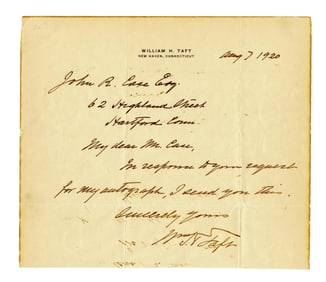 WILLIAM H. TAFT
NEW HAVEN, CONNECTICUT.
Aug 7 1920
John R. Case Esq.
62 Highland Street
Hartford Conn.
My dear Mr. Case,
In response to your request
for my autograph, I send you this.
Sincerely yours
Wm H Taft